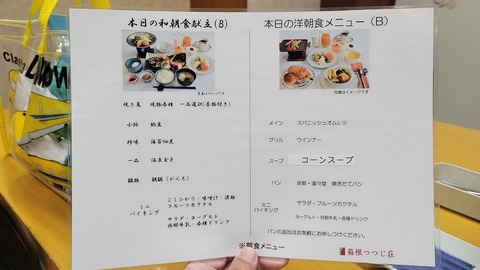 本日の和朝食献立(B)
写真はイメージです
焼き魚 焼物各種 一品選択(香物付き)
小鉢 納豆
珍味 海苔佃煮
一品 温泉玉子
鍋物 鉄鍋(がんも)
ミニバイキング
こしひかり・味噌汁・漬物
フルーツカクテル
サラダ・ヨーグルト
丹那牛乳・各種ドリンク
本日の洋朝食メニュー(B)
写真はイメージです
メイン スパニッシュオムレツ
グリル ウインナー
スープ コーンスープ
パン 京都・進々堂 焼きたてパン
ミニバイキング
サラダ・フルーツカクテル
ヨーグルト・丹那牛乳・各種ドリンク
パンの追加はお気軽にお申しつけください。
※朝食メニュー
箱根つつじ荘